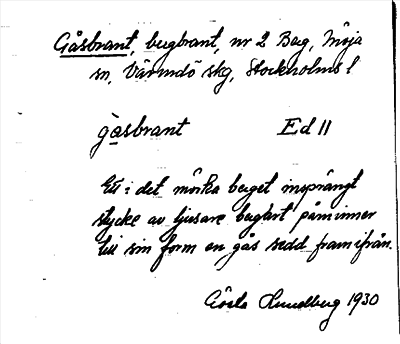 Gåsbrant, bergbrant, nr 2 Berg, Möja
sn, Värmdö skg, Stockholms l
gåsbrant Ed II
Ett i det mörka berget insprängt
stycke av ljusare bergart påminner
till sin form en gås sedd framifrån.
Gösta Lundberg 1930